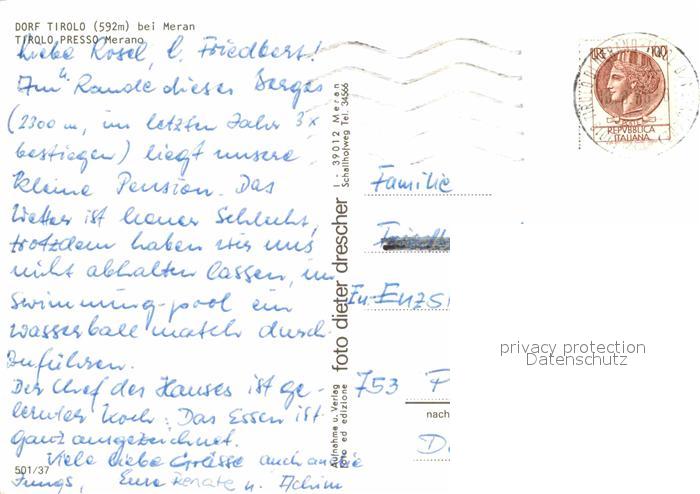 DORF TIROLO (592m) bei Meran
TIROLO PRESSO Merano
Liebe Rosel, l. Friedbert!
Am Rande dieses Berges
(2300 m, im letzten Jahr 3x
bestiegen) liegt unsere
kleine Pension. Das
Wetter ist heuer schlecht,
trotzdem haben wir uns
nicht abhalten lassen, im
Swimming-pool ein
Wasserball match durch-
zuführen.
Der Chef des Hauses ist ge-
lernter Koch: Das Essen ist
ganz ausgezeichnet.
Viele liebe Grüsse auch an die
Jungs, Eure Renate u. Achim
501/37
Aufnahme u. Verlag
foto ed edizione
foto dieter drescher
I - 39012 Meran
Schallhofweg Tel. 34566
LIRE 100
POSTE
REPVBBLICA
ITALIANA
Familie
753 P
nach
privacy protection
Datenschutz